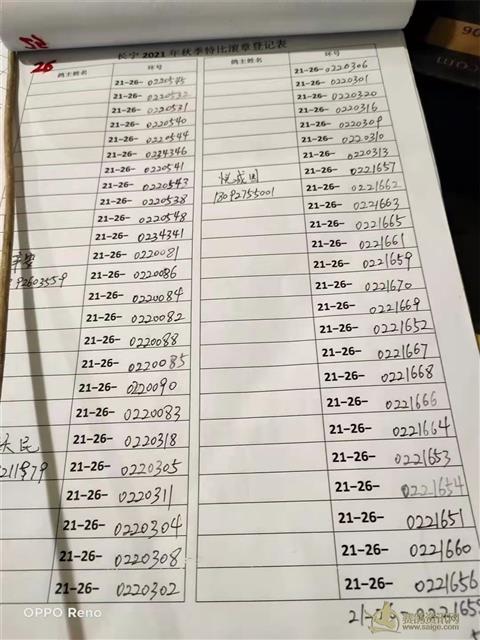 26
长宁2021年秋季特比滚章登记表
鸽主姓名 环号 鸽主姓名 环号
21-26-0220545
21-26-0220532
21-26-0220531
21-26-0220540
21-26-0220544
21-26-0234346
21-26-0220541
21-26-0220543
21-26-0220538
21-26-0220548
21-26-0234341
21-26-0220081
21-26-0220086
21-26-0220084
21-26-0220082
21-26-0220088
21-26-0220085
21-26-0220090
21-26-0220083
21-26-0220318
21-26-0220305
21-26-0220311
21-26-0220304
21-26-0220308
21-26-0220302
92603559
民
21-26-0220306
21-26-0220301
21-26-0220320
21-26-0220316
21-26-0220309
21-26-0220310
21-26-0220313
21-26-0221657
21-26-0221662
21-26-0221663
21-26-0221665
21-26-0221661
21-26-0221659
21-26-0221670
21-26-0221669
21-26-0221652
21-26-0221667
21-26-0221668
21-26-0221666
21-26-0221664
21-26-0221653
21-26-0221654
21-26-0221651
21-26-0221660
21-26-0221656
21-26-0221655
18092755001
OPPO Reno
赛鸽资讯网
www.saige.com